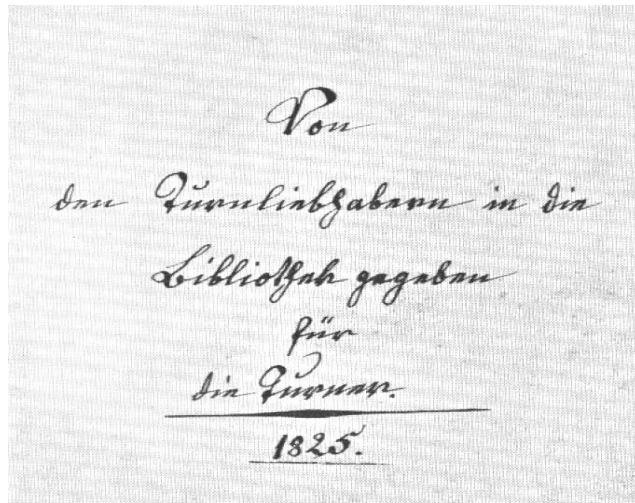 Von
den Turnliebhabern in die
Bibliothek gegeben
für
die Turner.
1825.